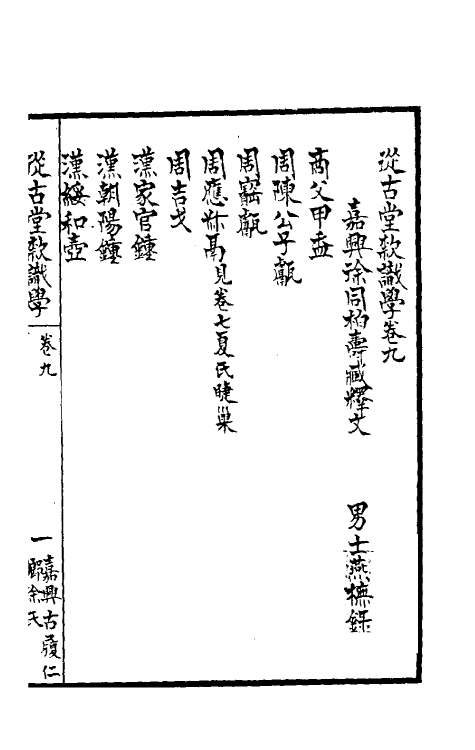 從古堂款識學卷九
嘉興徐同柏壽臧釋文 男士燕櫵錄
商父甲盉
周陳公子甗
周寤甗
周應㽙鬲見卷七夏氏睫巢
周吉戈
漢家官鍾
漢朝陽鍾
漢綏和壺
從古堂款識學 卷九 一 嘉興古履仁
鄉徐氏